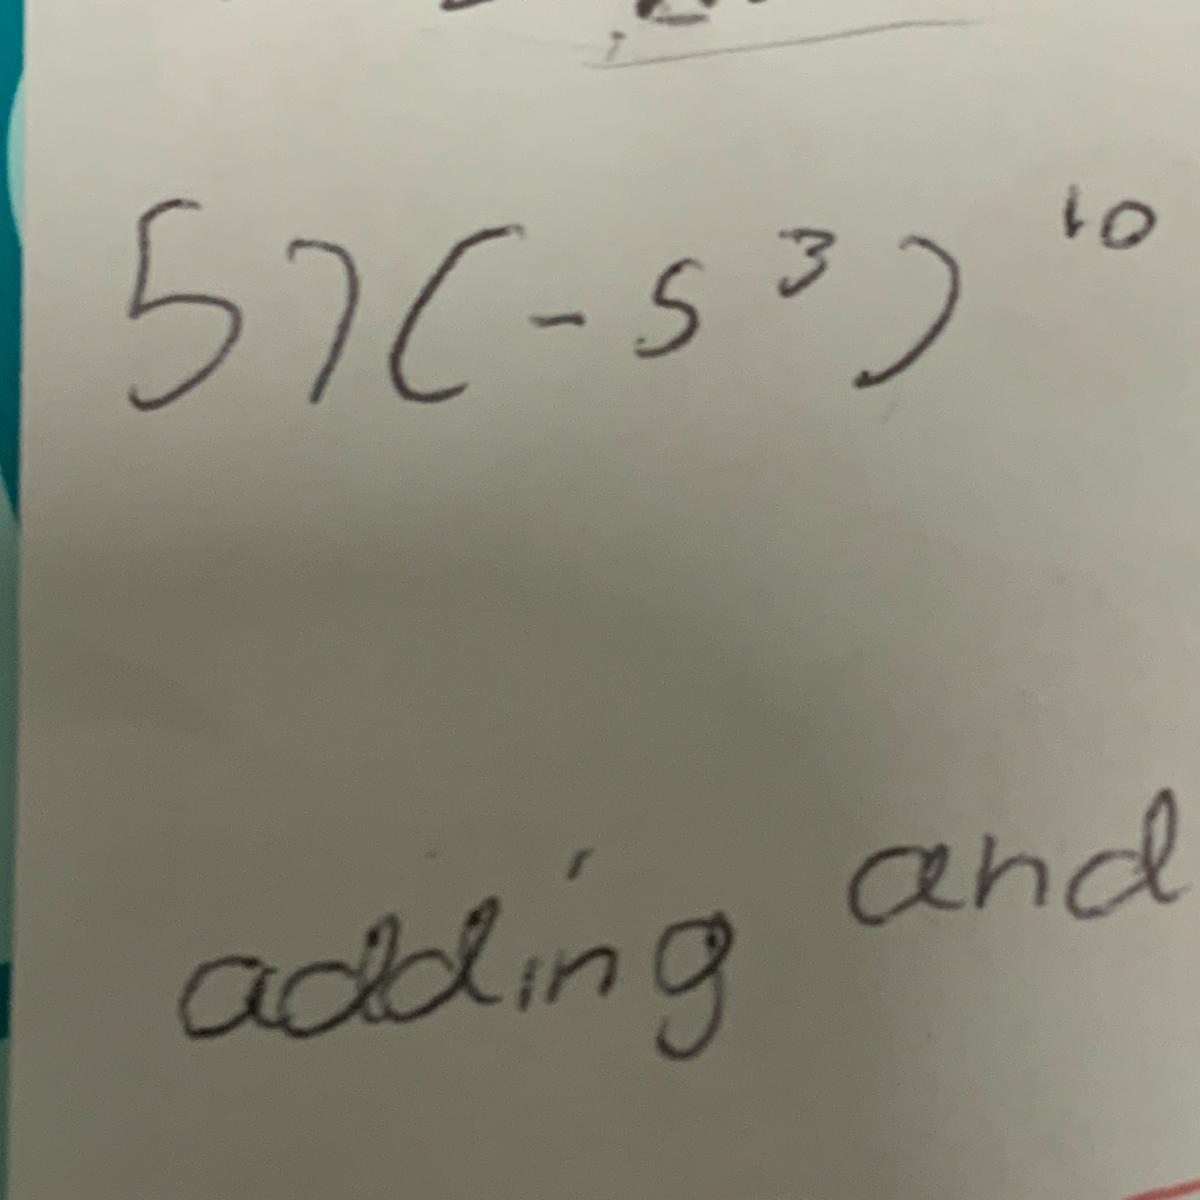 57(-s³)¹⁰
adding and